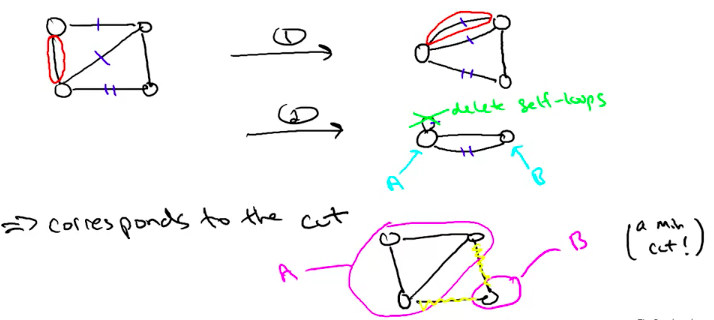 ①
② delete self-loops
A B
⇒ corresponds to the cut
A B (a min
cut!)